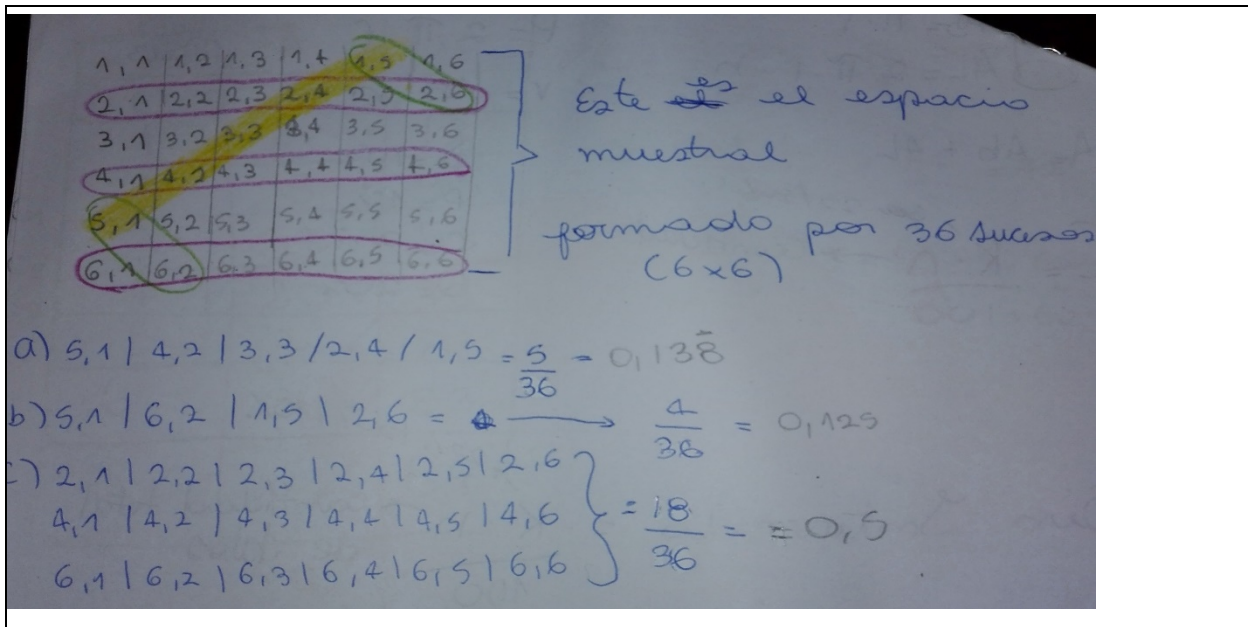 1,1 | 1,2 | 1,3 | 1,4 | 1,5 | 1,6
2,1 | 2,2 | 2,3 | 2,4 | 2,5 | 2,6
3,1 | 3,2 | 3,3 | 3,4 | 3,5 | 3,6
4,1 | 4,2 | 4,3 | 4,4 | 4,5 | 4,6
5,1 | 5,2 | 5,3 | 5,4 | 5,5 | 5,6
6,1 | 6,2 | 6,3 | 6,4 | 6,5 | 6,6
Este es el espacio
muestral
formado por 36 sucesos
(6x6)
a) 5,1 | 4,2 | 3,3 / 2,4 / 1,5 = 5/36 = 0,138̄
b) 5,1 | 6,2 | 1,5 | 2,6 = → 4/36 = 0,125
c) 2,1 | 2,2 | 2,3 | 2,4 | 2,5 | 2,6
4,1 | 4,2 | 4,3 | 4,4 | 4,5 | 4,6 } = 18/36 = = 0,5
6,1 | 6,2 | 6,3 | 6,4 | 6,5 | 6,6